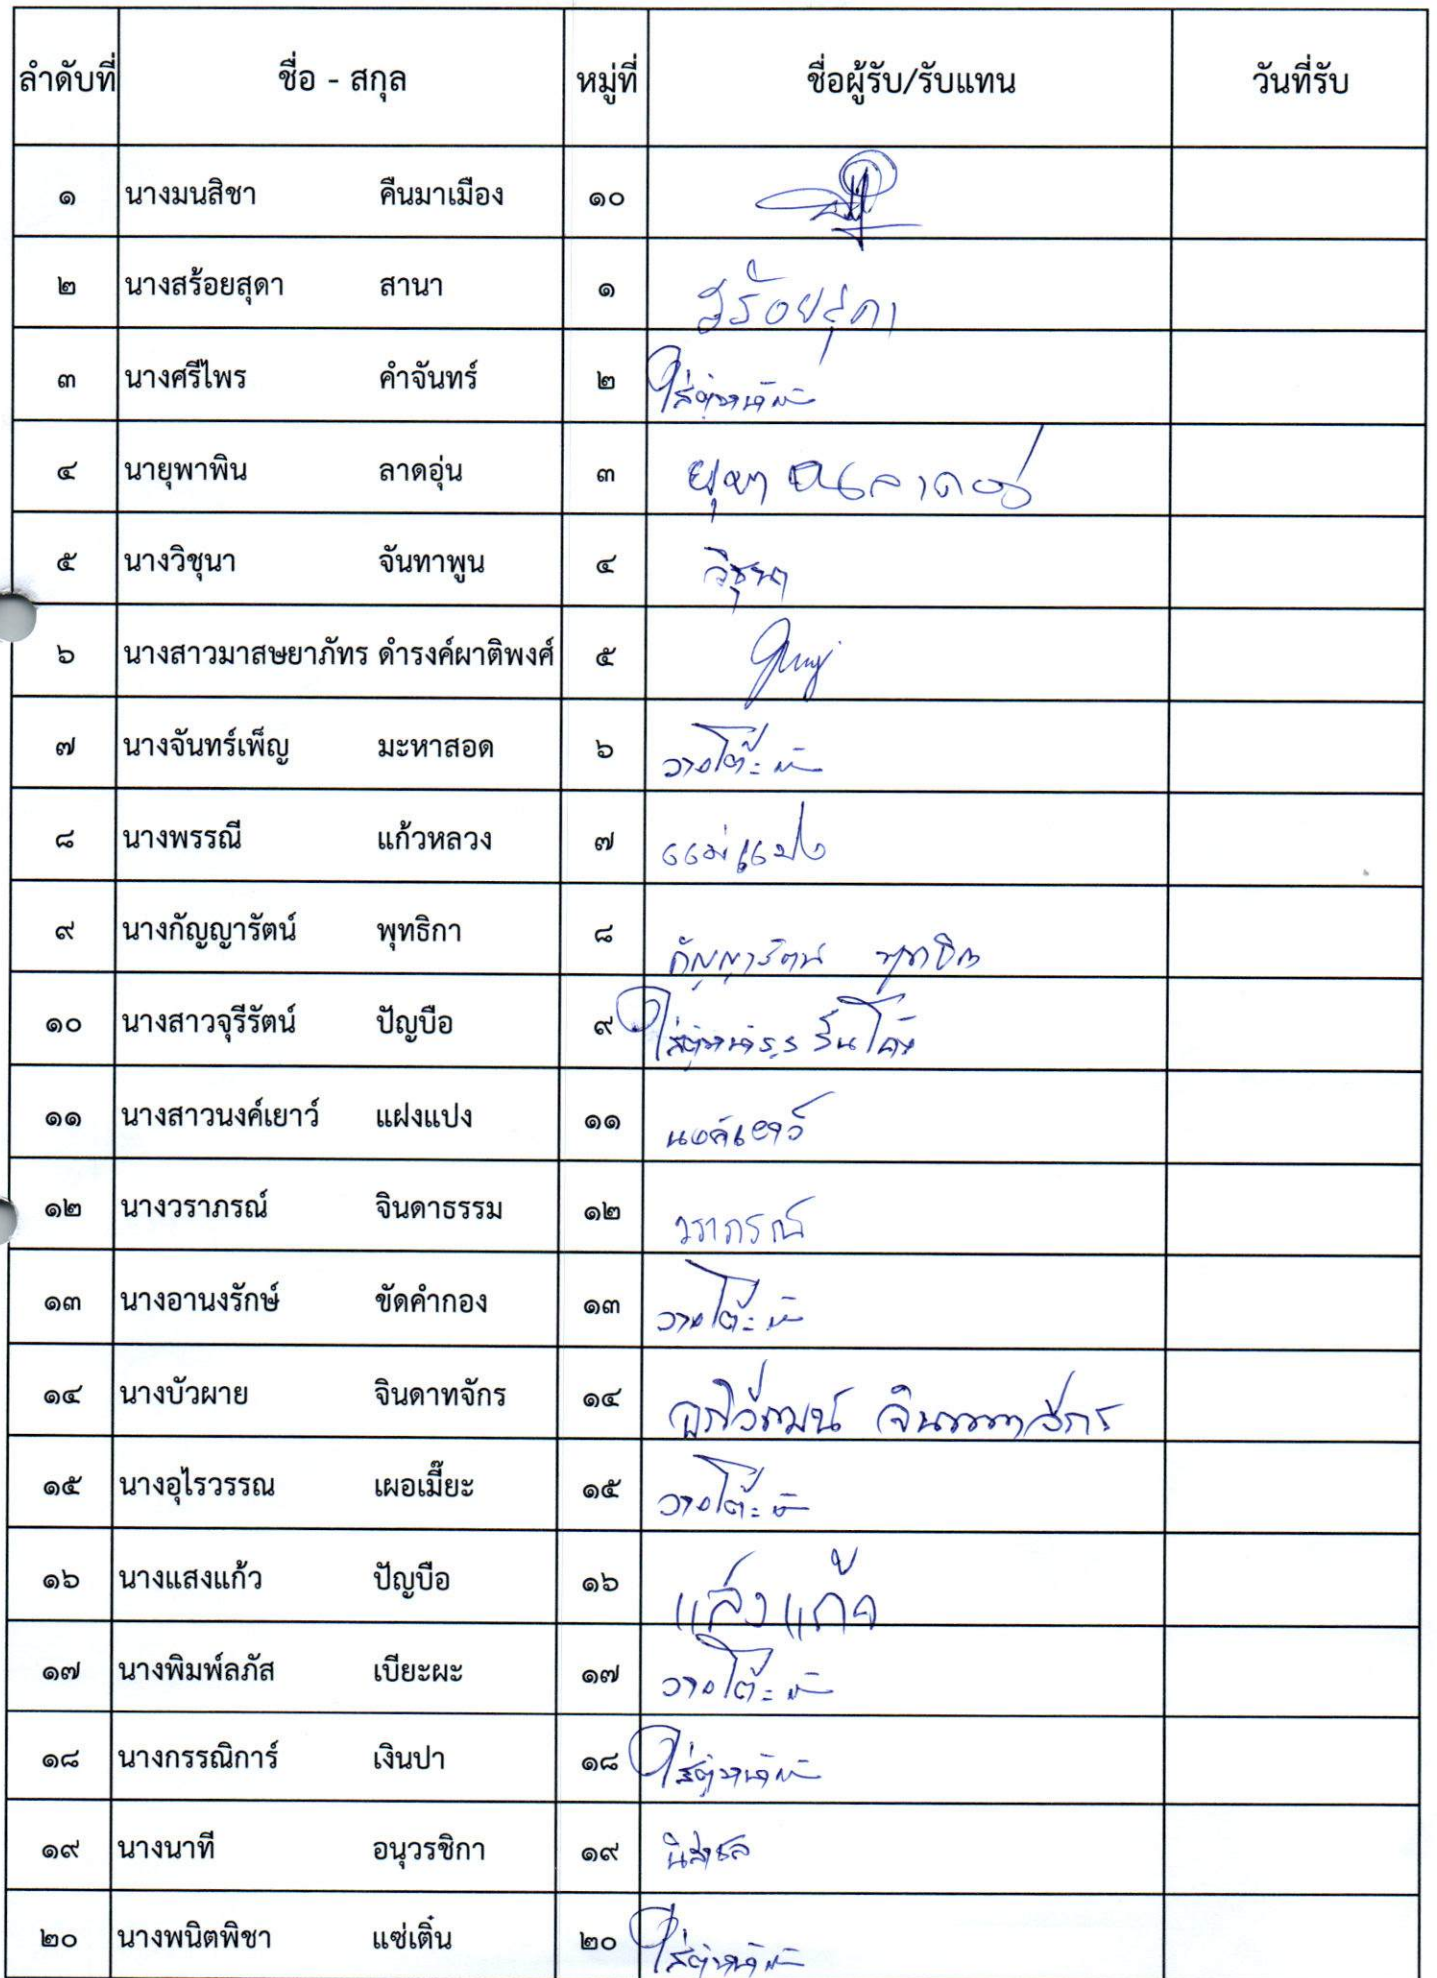 ลำดับที่ ชื่อ - สกุล หมู่ที่ ชื่อผู้รับ/รับแทน วันที่รับ
๑ นางมนสิชา คืนมาเมือง ๑๐
๒ นางสร้อยสุดา สานา ๑ สร้อยสุดา
๓ นางศรีไพร คำจันทร์ ๒
๔ นายุพาพิน ลาดอุ่น ๓
๕ นางวิชุนา จันทาพูน ๔ วิชุนา
๖ นางสาวมาสษยาภัทร ดำรงค์ผาติพงศ์ ๕
๗ นางจันทร์เพ็ญ มะหาสอด ๖ วางโต๊ะ
๘ นางพรรณี แก้วหลวง ๗
๙ นางกัญญารัตน์ พุทธิกา ๘ กัญญารัตน์
๑๐ นางสาวจุรีรัตน์ ปัญบือ ๙
๑๑ นางสาวนงค์เยาว์ แฝงแปง ๑๑ นงค์เยาว์
๑๒ นางวราภรณ์ จินดาธรรม ๑๒ วราภรณ์
๑๓ นางอานงรักษ์ ขัดคำกอง ๑๓ วางโต๊ะ
๑๔ นางบัวผาย จินดาทจักร ๑๔
๑๕ นางอุไรวรรณ เผอเมี๊ยะ ๑๕ วางโต๊ะ
๑๖ นางแสงแก้ว ปัญบือ ๑๖ แสงแก้ว
๑๗ นางพิมพ์ลภัส เบียะผะ ๑๗ วางโต๊ะ
๑๘ นางกรรณิการ์ เงินปา ๑๘
๑๙ นางนาที อนุวรชิกา ๑๙
๒๐ นางพนิตพิชา แซ่เติ๋น ๒๐